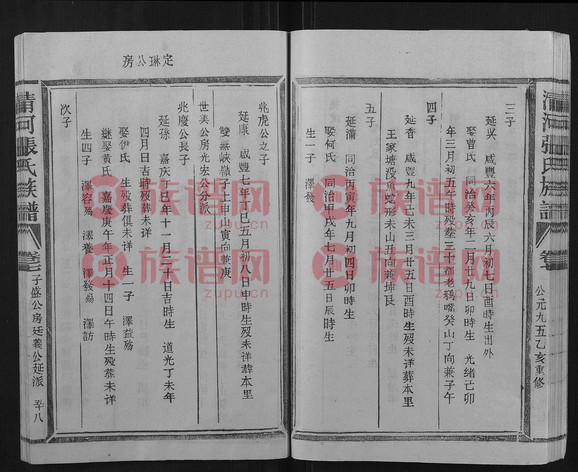 清河張氏族譜
卷
公元一九九五乙亥重修
三子
延吳 咸豐六年丙辰六月初七日酉時生出外
娶曾氏 同治二年癸亥二月廿九日卯時生 光緒己卯
年三月初五午時歿葬三十都老鴉嘴癸山丁向兼子午
四子
延香 咸豐九年己未三月廿五日酉時生歿未詳葬本里
王家塘沒魚蛇形未山丑向兼坤艮
五子
延滿 同治丙寅年九月初四日卯時生
娶何氏 同治甲戌年七月廿五日辰時生
生一子 澤發
定琳公房
兆虎公之子
延康 咸豐七年丁巳五月初八日申時生歿未詳葬本里
雙嘉峽嶺子土申山寅向兼庚
世美公房光宏公分派
兆慶公長子
延孫 嘉慶乙巳年十一月三十日吉時生 道光丁未年
四月四日吉時歿葬未詳
娶伊氏 生歿葬俱未詳 生一子 澤益殤
繼娶黃氏 嘉慶庚午年正月十四日午時生歿葬未詳
生四子 澤容殤 澤養 澤發殤 澤訪
次子
清河張氏族譜
卷
子盛公房廷義公延派